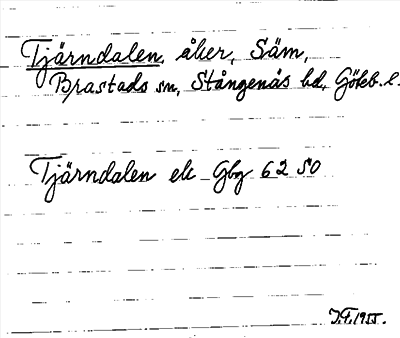 Tjärndalen, åker, Säm,
Brastads sn, Stångenäs hd, Göteb. l.
Tjärndalen ek Gbg 62 SO
J.F. 1955.